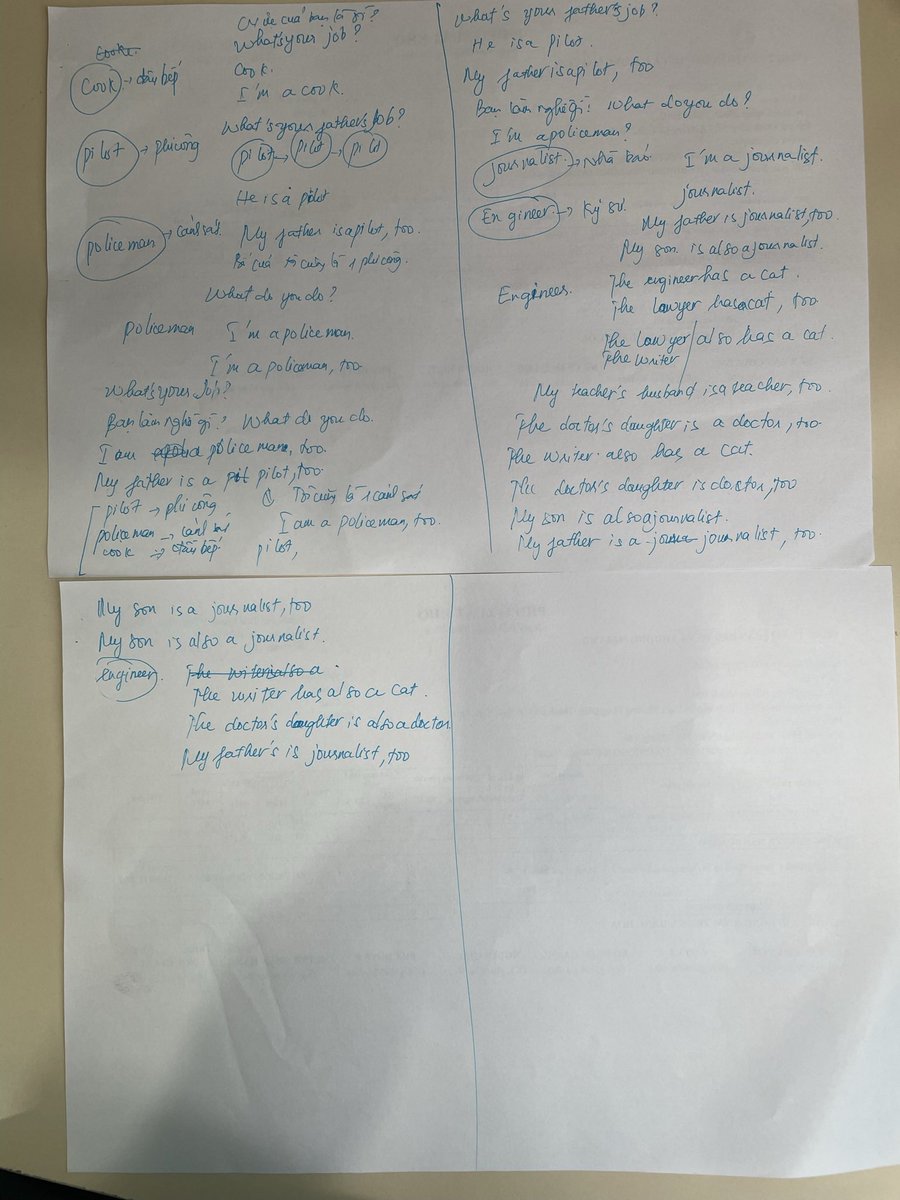 What's your job?
Cook → đầu bếp
Cook.
I'm a cook.
What's your father's job?
pilot → phi công
pilot → pilot → pilot
He is a pilot
policeman → cảnh sát.
My father is a pilot, too.
Bố của tôi cũng là 1 phi công.
What do you do?
policeman I'm a policeman.
I'm a policeman, too.
What's your Job?
Bạn làm nghề gì? What do you do.
I am a policeman, too.
My father is a pilot, too.
pilot → phi công
Tôi cũng là 1 cảnh sát
policeman → cảnh sát
I am a policeman, too.
cook → đầu bếp.
pilot,
What's your father's job?
He is a pilot.
My father is a pilot, too
Bạn làm nghề gì? What do you do?
I'm a policeman?
journalist. → Nhà báo
I'm a journalist.
journalist.
Engineer → Kỹ sư.
My father is journalist, too.
My son is also a journalist.
Engineer.
The engineer has a cat.
The lawyer has a cat, too.
The lawyer also has a cat.
The writer
My teacher's husband is a teacher, too.
The doctor's daughter is a doctor, too.
The writer also has a cat.
The doctor's daughter is doctor, too
My son is also a journalist.
My father is a journalist, too.
My son is a journalist, too
My son is also a journalist.
engineer.
The writer is also a
The writer has also a cat.
The doctor's daughter is also a doctor
My father's is journalist, too